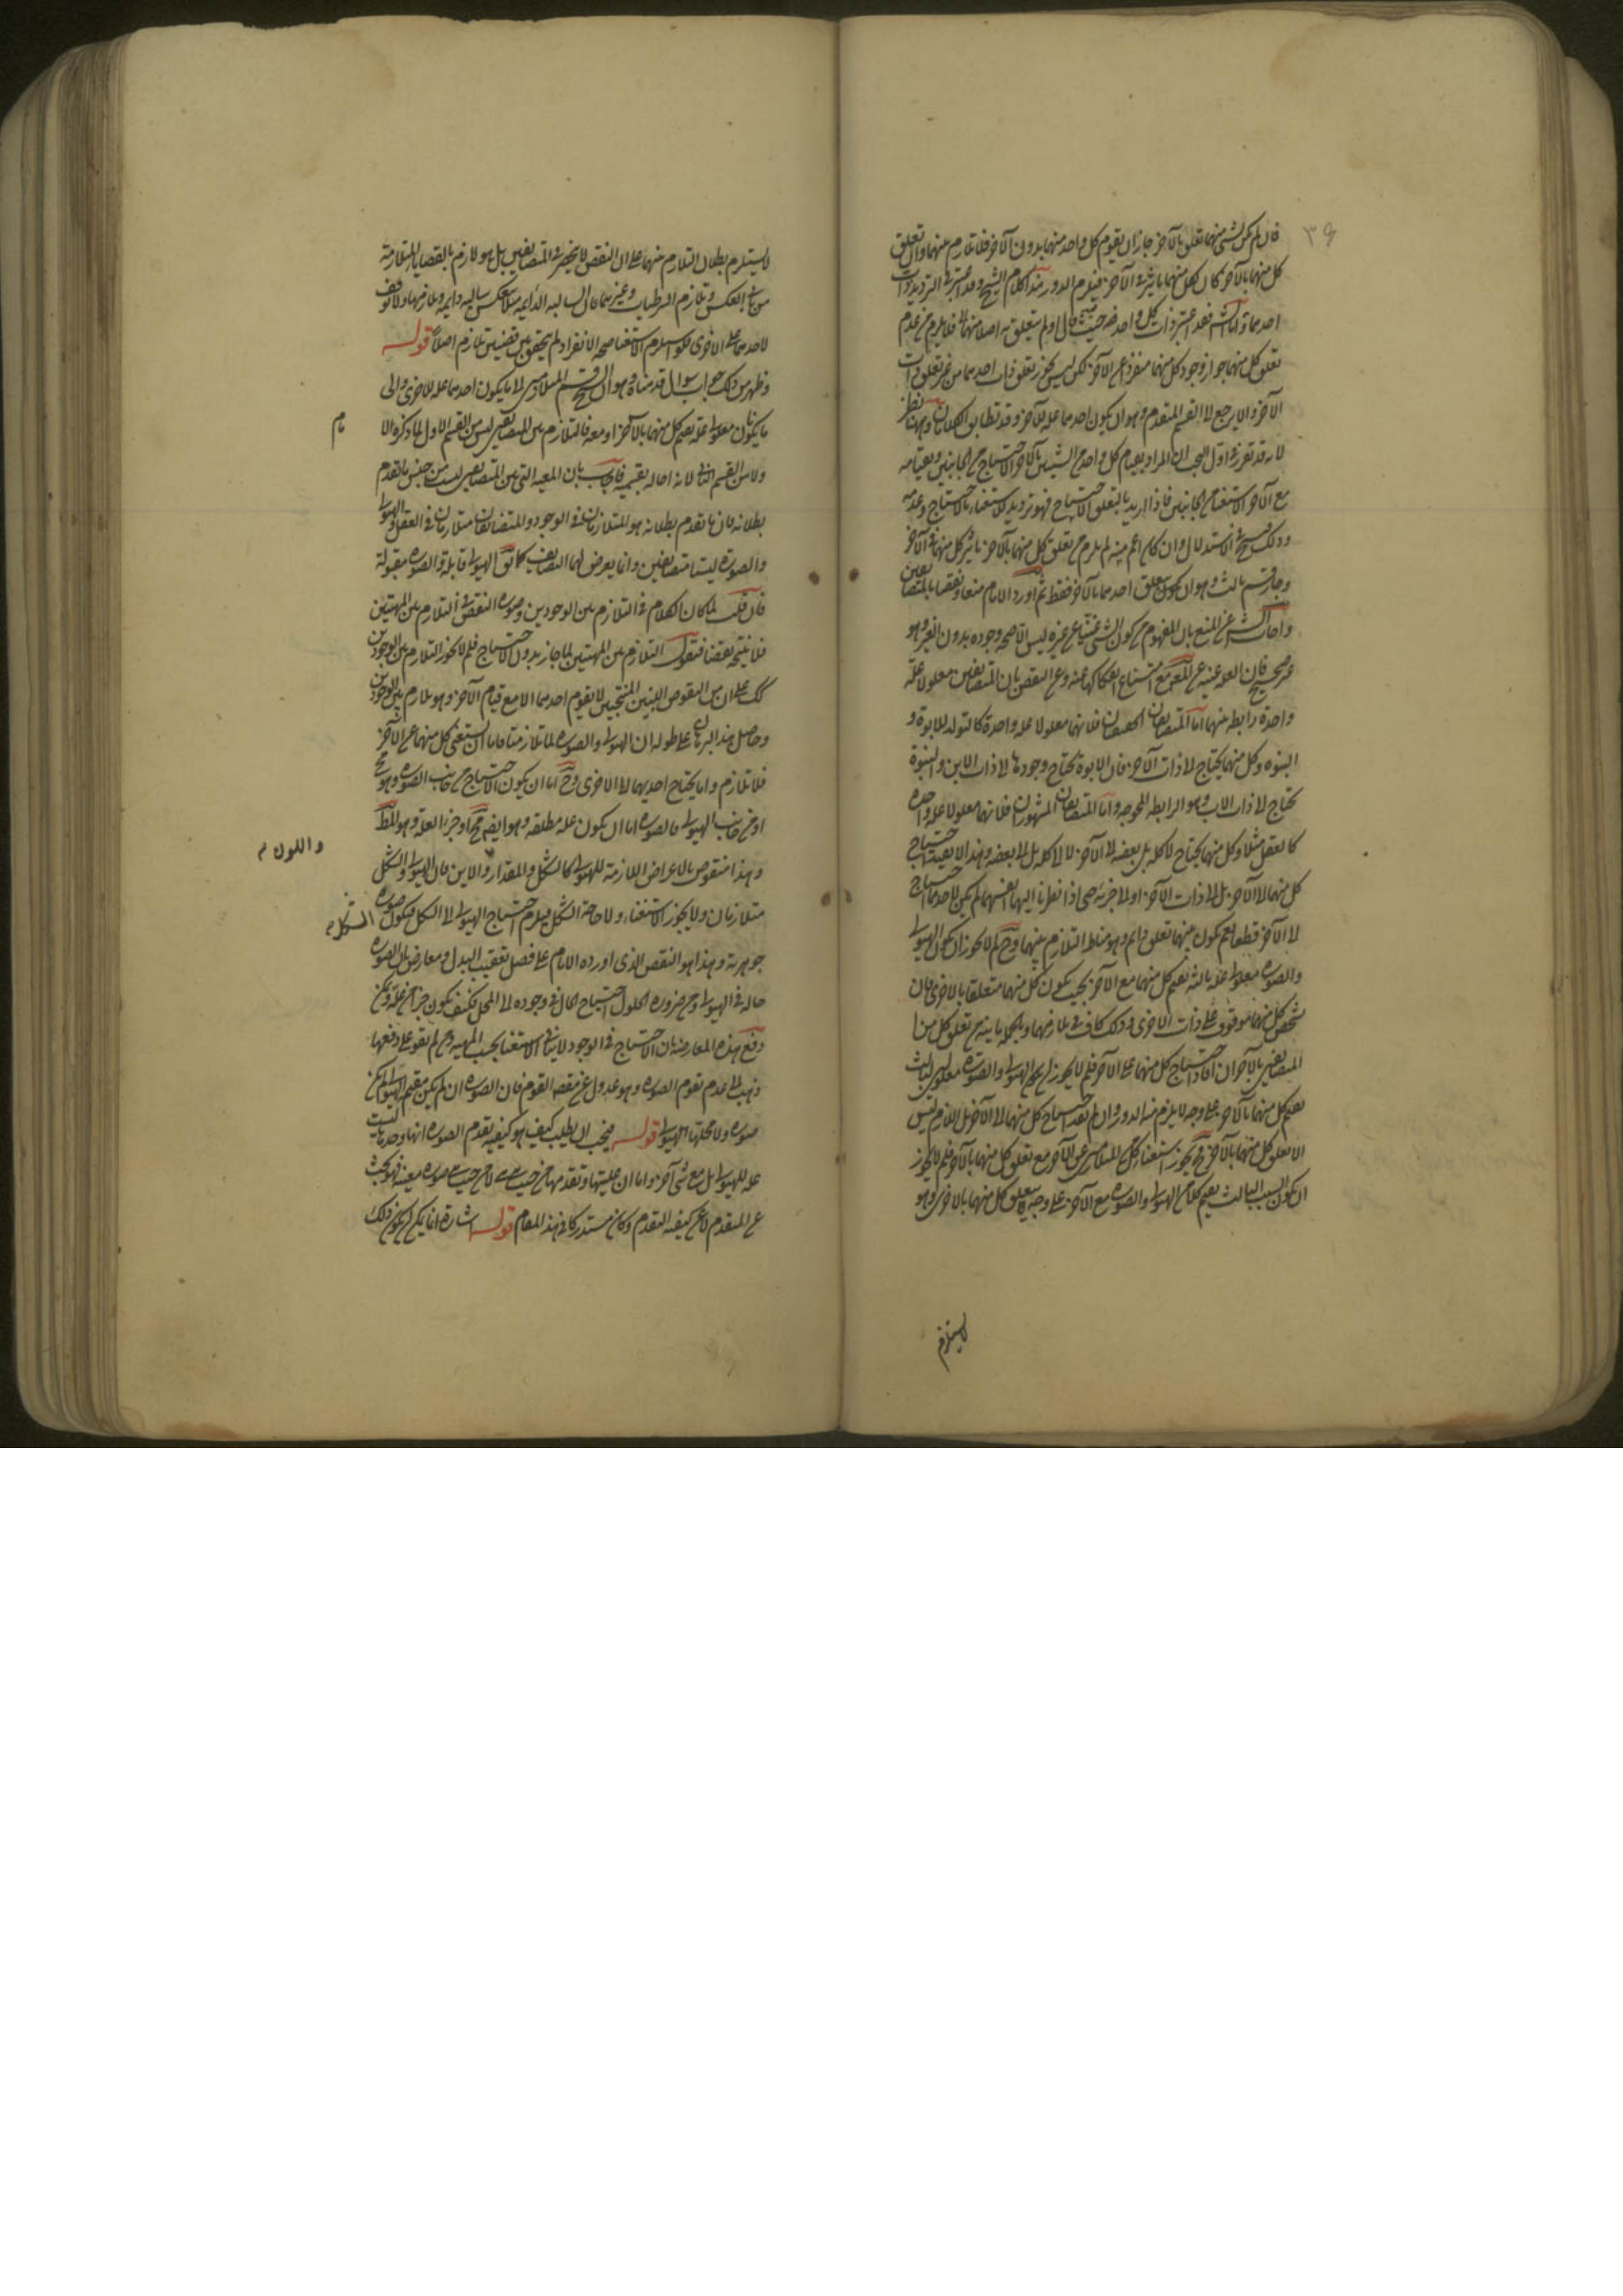 ٣٩
فان لم يكن لشئ منهما تعلق بالآخر جاز ان يقوم كل واحد منهما بدون الآخر فلا تلازم بينهما وان تعلق
كل منهما بالآخر كان لكل منهما تاثير فى الآخر فيلزم الدور هذا كلام الشيخ وقد اعتبر فى الترديد ذات
احدهما واما الشه فقد اعتبر ذات كل واحد منهما حيث قال او لم يتعلق به اصلا فلا يلزم من عدم
تعلق كل منهما جواز وجود كل منهما منفردا عن الآخر لكن ليس يجوز تعلق ذات احدهما من غير تعلق ذات
الآخر والا يرجع الى القسم المتقدم وهو ان يكون احدهما علة للآخر وقد تطابق الكلامان وههنا نظر
لانه قد تقرر فى اول البحث ان المراد بقيام كل واحد من الشيئين بالآخر الاحتياج من الجانبين وبقيامه
مع الآخر الاستغناء من الجانبين فاذا اريد بالتعلق الاحتياج فهو ترديد للاستغناء بالاحتياج وعدمه
وذلك قبيح فى الاستدلال وان كان اعم منه لم يلزم من تعلق كل منهما بالآخر تاثير كل منهما فى الآخر
وجاز قسم ثالث وهو ان يكون تعلق احدهما بالآخر فقط ثم اورد الامام منعا ونقضا بالمتضايفين
واجاب الشه عن المنع بان المفهوم من كون الشئ غنيا عن غيره ليس الا صحة وجوده بدون الغير وهو
غير صحيح فان العلة غنية عن المعلول مع امتناع انفكاكها عنه وعن النقض بان المتضايفين معلولا علة
واحدة رابطة بينهما اما المتضايفان الحقيقيان فلانهما معلولا علة واحدة كالتولد للابوة و
البنوة وكل منهما يحتاج الى ذات الآخر فان الابوة تحتاج وجودها الى ذات الابن والبنوة
تحتاج الى ذات الاب وهو الرابطة المحوجة واما المتضايفان المشهوران فلانهما معلولا علة واحدة
كالعقل مثلا وكل منهما يحتاج لا كله بل بعضه الى الآخر لا الى كله بل الى بعضه وهذا لا يفيد احتياج
كل منهما الى الآخر بل الى ذات الآخر او الى جزئه حتى اذا نظرنا اليهما انفسهما لم يكن لاحدهما احتياج
الى الآخر قطعا نعم يكون بينهما تعلق دايم وهو مناط التلازم بينهما وح لم لا يجوز ان يكون الهيولى
والصورة معلولى علة ثالثة تقيم كل منهما مع الآخر بحيث يكون كل منهما متعلقا بالاخرى فان
تشخص كل منهما موقوف على ذات الاخرى وذلك كاف فى تلازمهما وبالجملة ما بينه من تعلق كل من
المتضايفين بالآخر ان افاد احتياج كل منهما الى الآخر فلم لا يجوز ان يكون الهيولى والصورة معلولى ثالث
تقيم كل منهما بالآخر على وجه لا يلزم منه الدور وان لم يفد احتياج كل منهما الى الآخر بل اللازم ليس
الا تعلق كل منهما بالآخر فح يجوز استغناء كل من المتلازمين عن الآخر مع تعلق كل منهما بالآخر فلم لا يجوز
ان يكون السبب الثالث يقيم كلا من الهيولى والصورة مع الآخر على وجه يتعلق كل منهما بالاخرى وهو
لا يستلزم
لا يستلزم بطلان التلازم منهما على ان النقض لا ينحصر فى المتضايفين بل هو لازم بالقضايا المتلازمة
من باب العكس وتلازم الشرطيات وغيرهما فان السالبة الدائمة تنعكس سالبة دايمة وتلازمها ولا توقف
لاحدهما على الاخرى فلو استلزم الاستغناء صحة الانفراد لم يتحقق بين قضيتين تلازم اصلا قوله
وظهر من ذلك جواب سوال قدمناه وهو ان الشيخ قسم المتلازمين الى ما يكون احدهما علة للاخرى والى
ما يكونان معلولى علة تقيم كل منهما بالآخر او معه فالتلازم بين المتضايفين ليس من القسم الاول لما ذكره ولا
تام
ولا من القسم الثانى لانه احاله بقسميه فاجاب بان المعية التى بين المتضايفين ليست من جنس ما تقدم
بطلانه فان ما تقدم بطلانه هو المتلازمان فى الوجود والمتضايفان متلازمان فى العقل والهيولى
والصورة ليستا متضايفين وانما يعرض لهما التضايف كما يق الهيولى قابلة والصورة مقبولة
فان قلت لما كان الكلام فى التلازم بين الوجودين وصورة النقض فى التلازم بين المهيتين
فلا يتجه نقضا فنقول التلازم بين المهيتين لما جاز بدون الاحتياج فلم لا يجوز التلازم بين الوجودين
كك على ان من النقوض اللبنتين المنحنيتين لا يقوم احدهما الا مع قيام الآخر وهو تلازم بين الوجودين
وحاصل هذا البرهان على طوله ان الهيولى والصورة لما تلازمتا فاما ان يستغنى كل منهما عن الآخر
فلا تلازم واما يحتاج احديهما الى الاخرى وح اما ان يكون الاحتياج من جانب الصورة وهو مح
او من جانب الهيولى فالصورة اما ان يكون علة مطلقة وهو ايضا مح او جزء العلة وهو المط
وهذا منقوض بالاعراض اللازمة للهيولى كالشكل والمقدار والاين فان الهيولى والشكل
واللون م
متلازمان ولا يجوز الاستغناء ولا حاجة الشكل فيلزم احتياج الهيولى الى الشكل فيكون صورة
جوهرية وهذا هو النقض الذى اورده الامام على فصل تعقيب البدل ومعارض بان الصورة
حالة فى الهيولى ومن ضرورة الحلول احتياج الحال فى وجوده الى المحل فكيف يكون جزءا من علته ويمكن
دفع هذه المعارضة بان الاحتياج فى الوجود لا ينافى الاستغناء بحسب المهية ومن لم يقو على دفعها
ذهب الى عدم تقوم الصورة وهو عدول عن مقصد القوم فان الصورة ان لم يكن مقيمة للهيولى لم يكن
صورة ولا محلها الهيولى قوله فيجب ان يطلب كيف هو كيفية تقدم الصورة انها وحدها ليست
علة للهيولى بل مع شئ آخر واما ان عليتها وتقدمها من حيث هى لا من حيث هى صورة معينة فهو بحث
عن المتقدم لا عن كيفية التقدم وكان مستدركا فى هذا المقام قوله اشارة انما يمكن ان يكون ذلك